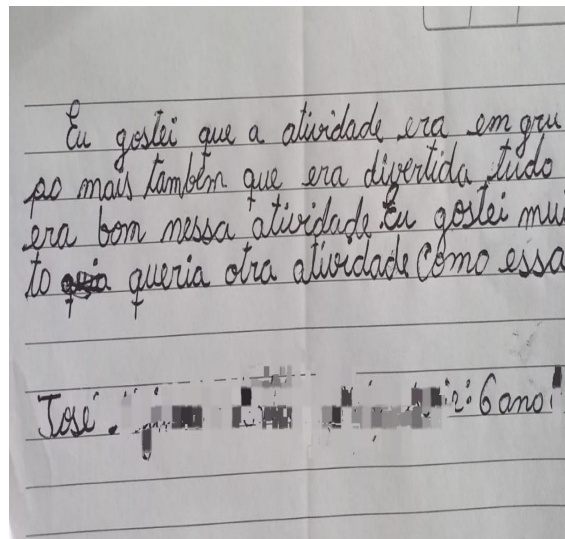 Eu gostei que a atividade era em gru
po mais tambem que era divertida tudo
era bom nessa atividade. Eu gostei mui
to queria otra atividade como essa
José. 6 ano